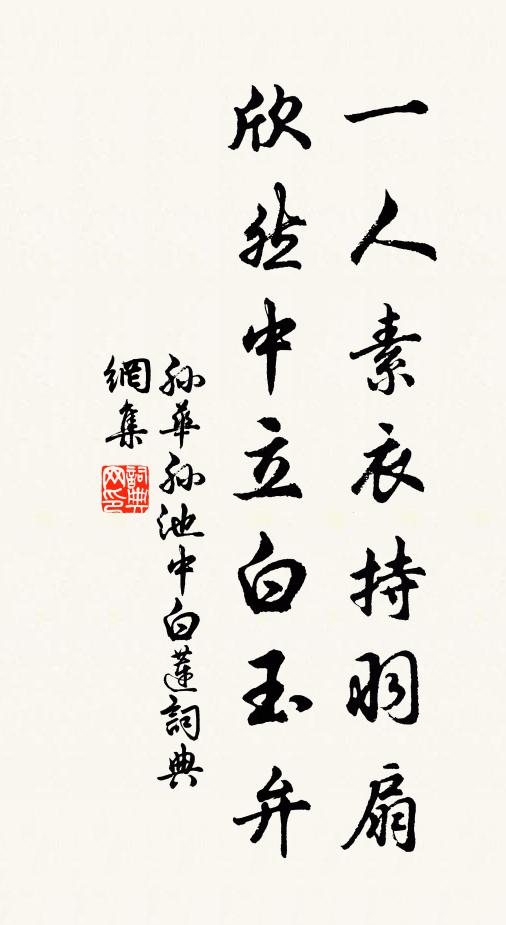 一人素衣持羽扇
欣然中立白玉弁
孙華孙池中白蓮詞典
網集
詞典
网印